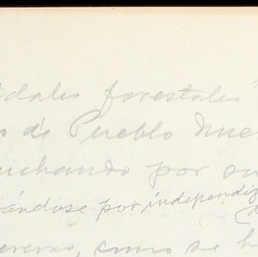 dales forestales
de Pueblo Nue
uchando por su
ándose por independiz
como se h